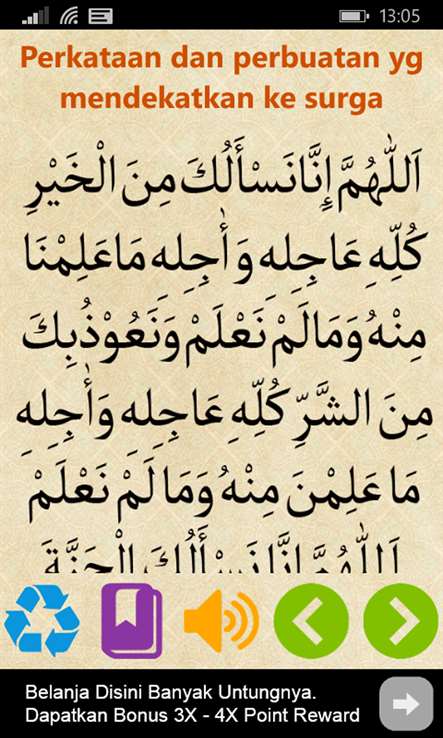 13:05
Perkataan dan perbuatan yg
mendekatkan ke surga
اَللّٰهُمَّ إِنَّانَسْأَلُكَ مِنَ الْخَيْرِ
كُلِّهِ عَاجِلِهِ وَأٰجِلِهِ مَاعَلِمْنَا
مِنْهُ وَمَالَمْ نَعْلَمْ وَنَعُوْذُبِكَ
مِنَ الشَّرِّ كُلِّهِ عَاجِلِهِ وَأٰجِلِهِ
مَاعَلِمْنَ مِنْهُ وَمَا لَمْ نَعْلَمْ
اَللّٰهُمَّ إِنَّا نَسْأَلُكَ الْجَنَّةَ
Belanja Disini Banyak Untungnya.
Dapatkan Bonus 3X - 4X Point Reward